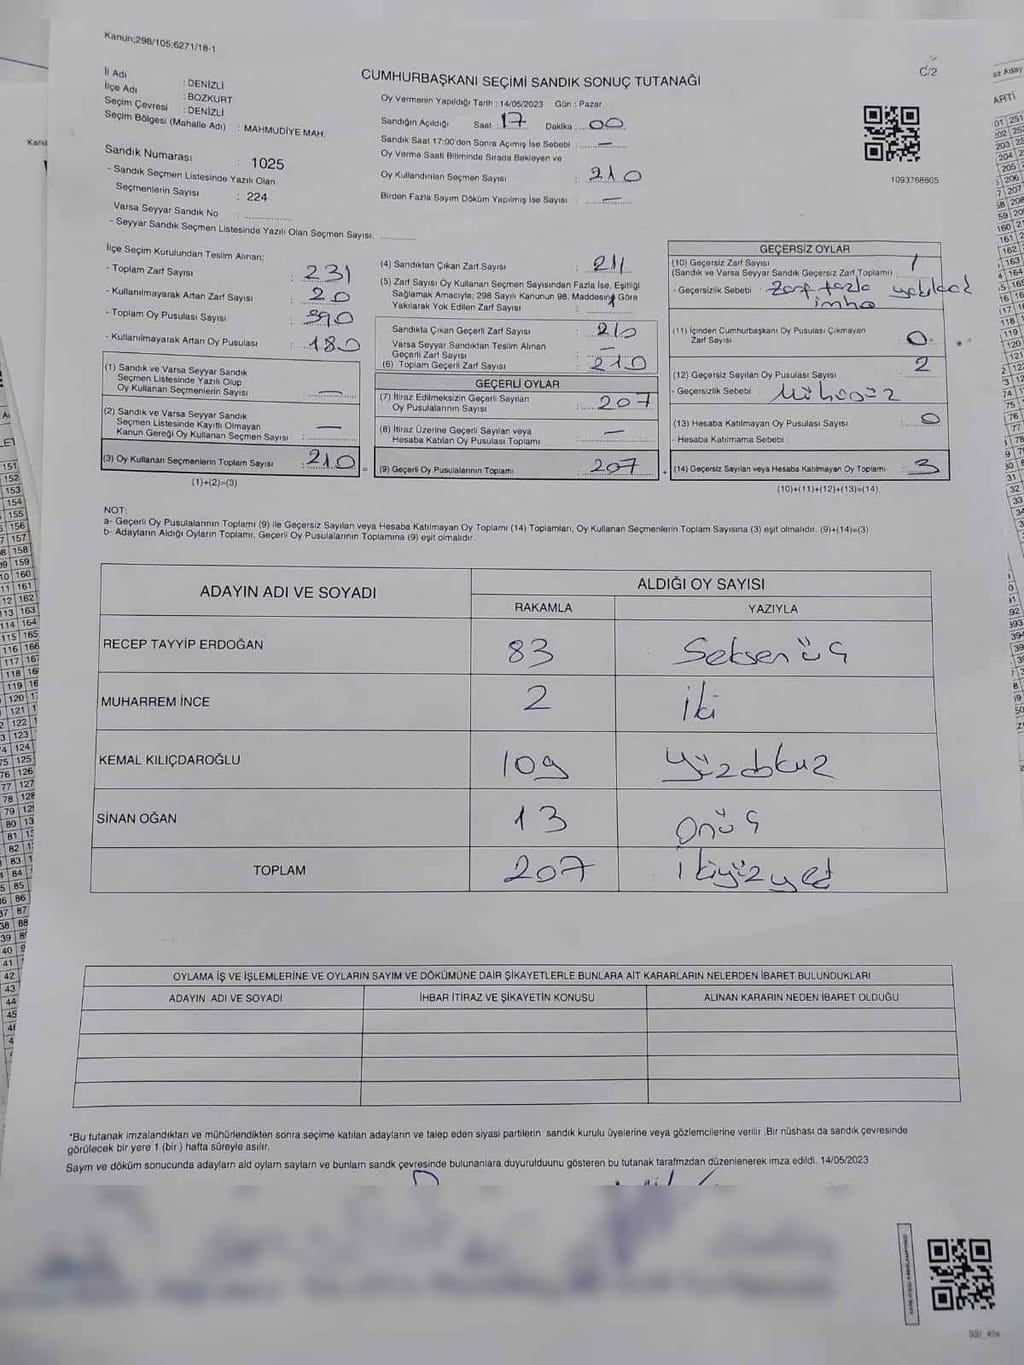 Kanun;298/105;6271/18-1
C/2
CUMHURBAŞKANI SEÇİMİ SANDIK SONUÇ TUTANAĞI
İl Adı : DENİZLİ
İlçe Adı : BOZKURT
Seçim Çevresi : DENİZLİ
Seçim Bölgesi (Mahalle Adı) : MAHMUDİYE MAH.
Sandık Numarası : 1025
- Sandık Seçmen Listesinde Yazılı Olan
Seçmenlerin Sayısı : 224
Varsa Seyyar Sandık No : ..............
- Seyyar Sandık Seçmen Listesinde Yazılı Olan Seçmen Sayısı: ..............
Oy Vermenin Yapıldığı Tarih : 14/05/2023 Gün : Pazar
Sandığın Açıldığı Saat : 17 Dakika : 00
Sandık Saat 17:00'den Sonra Açımış İse Sebebi : —
Oy Verme Saati Bitiminde Sırada Bekleyen ve
Oy Kullandırılan Seçmen Sayısı : 210
Birden Fazla Sayım Döküm Yapılmış İse Sayısı : —
1093768605
İlçe Seçim Kurulundan Teslim Alınan;
- Toplam Zarf Sayısı : 231
- Kullanılmayarak Artan Zarf Sayısı : 20
- Toplam Oy Pusulası Sayısı : 390
- Kullanılmayarak Artan Oy Pusulası : 180
(1) Sandık ve Varsa Seyyar Sandık
Seçmen Listesinde Yazılı Olup
Oy Kullanan Seçmenlerin Sayısı : —
(2) Sandık ve Varsa Seyyar Sandık
Seçmen Listesinde Kayıtlı Olmayan
Kanun Gereği Oy Kullanan Seçmen Sayısı : —
(3) Oy Kullanan Seçmenlerin Toplam Sayısı : 210 =
(1)+(2)=(3)
(4) Sandıktan Çıkan Zarf Sayısı : 211
(5) Zarf Sayısı Oy Kullanan Seçmen Sayısından Fazla İse, Eşitliği
Sağlamak Amacıyla; 298 Sayılı Kanunun 98. Maddesine Göre
Yakılarak Yok Edilen Zarf Sayısı : 1
Sandıkta Çıkan Geçerli Zarf Sayısı : 210
Varsa Seyyar Sandıktan Teslim Alınan
Geçerli Zarf Sayısı : —
(6) Toplam Geçerli Zarf Sayısı : 210
GEÇERLİ OYLAR
(7) İtiraz Edilmeksizin Geçerli Sayılan
Oy Pusulalarının Sayısı : 207
(8) İtiraz Üzerine Geçerli Sayılan veya
Hesaba Katılan Oy Pusulası Toplamı : —
(9) Geçerli Oy Pusulalarının Toplamı : 207 +
GEÇERSİZ OYLAR
(10) Geçersiz Zarf Sayısı : 1
(Sandık ve Varsa Seyyar Sandık Geçersiz Zarf Toplamı)
- Geçersizlik Sebebi : Zarf fazla
imha
(11) İçinden Cumhurbaşkanı Oy Pusulası Çıkmayan
Zarf Sayısı : 0
(12) Geçersiz Sayılan Oy Pusulası Sayısı : 2
- Geçersizlik Sebebi : Mühürsüz
(13) Hesaba Katılmayan Oy Pusulası Sayısı : 0
- Hesaba Katılmama Sebebi :
(14) Geçersiz Sayılan veya Hesaba Katılmayan Oy Toplamı : 3
(10)+(11)+(12)+(13)=(14)
NOT:
a- Geçerli Oy Pusulalarının Toplamı (9) ile Geçersiz Sayılan veya Hesaba Katılmayan Oy Toplamı (14) Toplamları, Oy Kullanan Seçmenlerin Toplam Sayısına (3) eşit olmalıdır. (9)+(14)=(3)
b- Adayların Aldığı Oyların Toplamı, Geçerli Oy Pusulalarının Toplamına (9) eşit olmalıdır.
ADAYIN ADI VE SOYADI ALDIĞI OY SAYISI
RAKAMLA YAZIYLA
RECEP TAYYİP ERDOĞAN 83 Seksenüç
MUHARREM İNCE 2 İki
KEMAL KILIÇDAROĞLU 109 yüzdokuz
SİNAN OĞAN 13 Onüç
TOPLAM 207 ikiyüzyedi
OYLAMA İŞ VE İŞLEMLERİNE VE OYLARIN SAYIM VE DÖKÜMÜNE DAİR ŞİKAYETLERLE BUNLARA AİT KARARLARIN NELERDEN İBARET BULUNDUKLARI
ADAYIN ADI VE SOYADI İHBAR İTİRAZ VE ŞİKAYETİN KONUSU ALINAN KARARIN NEDEN İBARET OLDUĞU
*Bu tutanak imzalandıktan ve mühürlendikten sonra seçime katılan adayların ve talep eden siyasi partilerin sandık kurulu üyelerine veya gözlemcilerine verilir .Bir nüshası da sandık çevresinde
görülecek bir yere 1 (bir ) hafta süreyle asılır.
Sayım ve döküm sonucunda adayların ald oyların sayların ve bunların sandk çevresinde bulunanlara duyurulduunu gösteren bu tutanak tarafmzdan düzenlenerek imza edildi. 14/05/2023